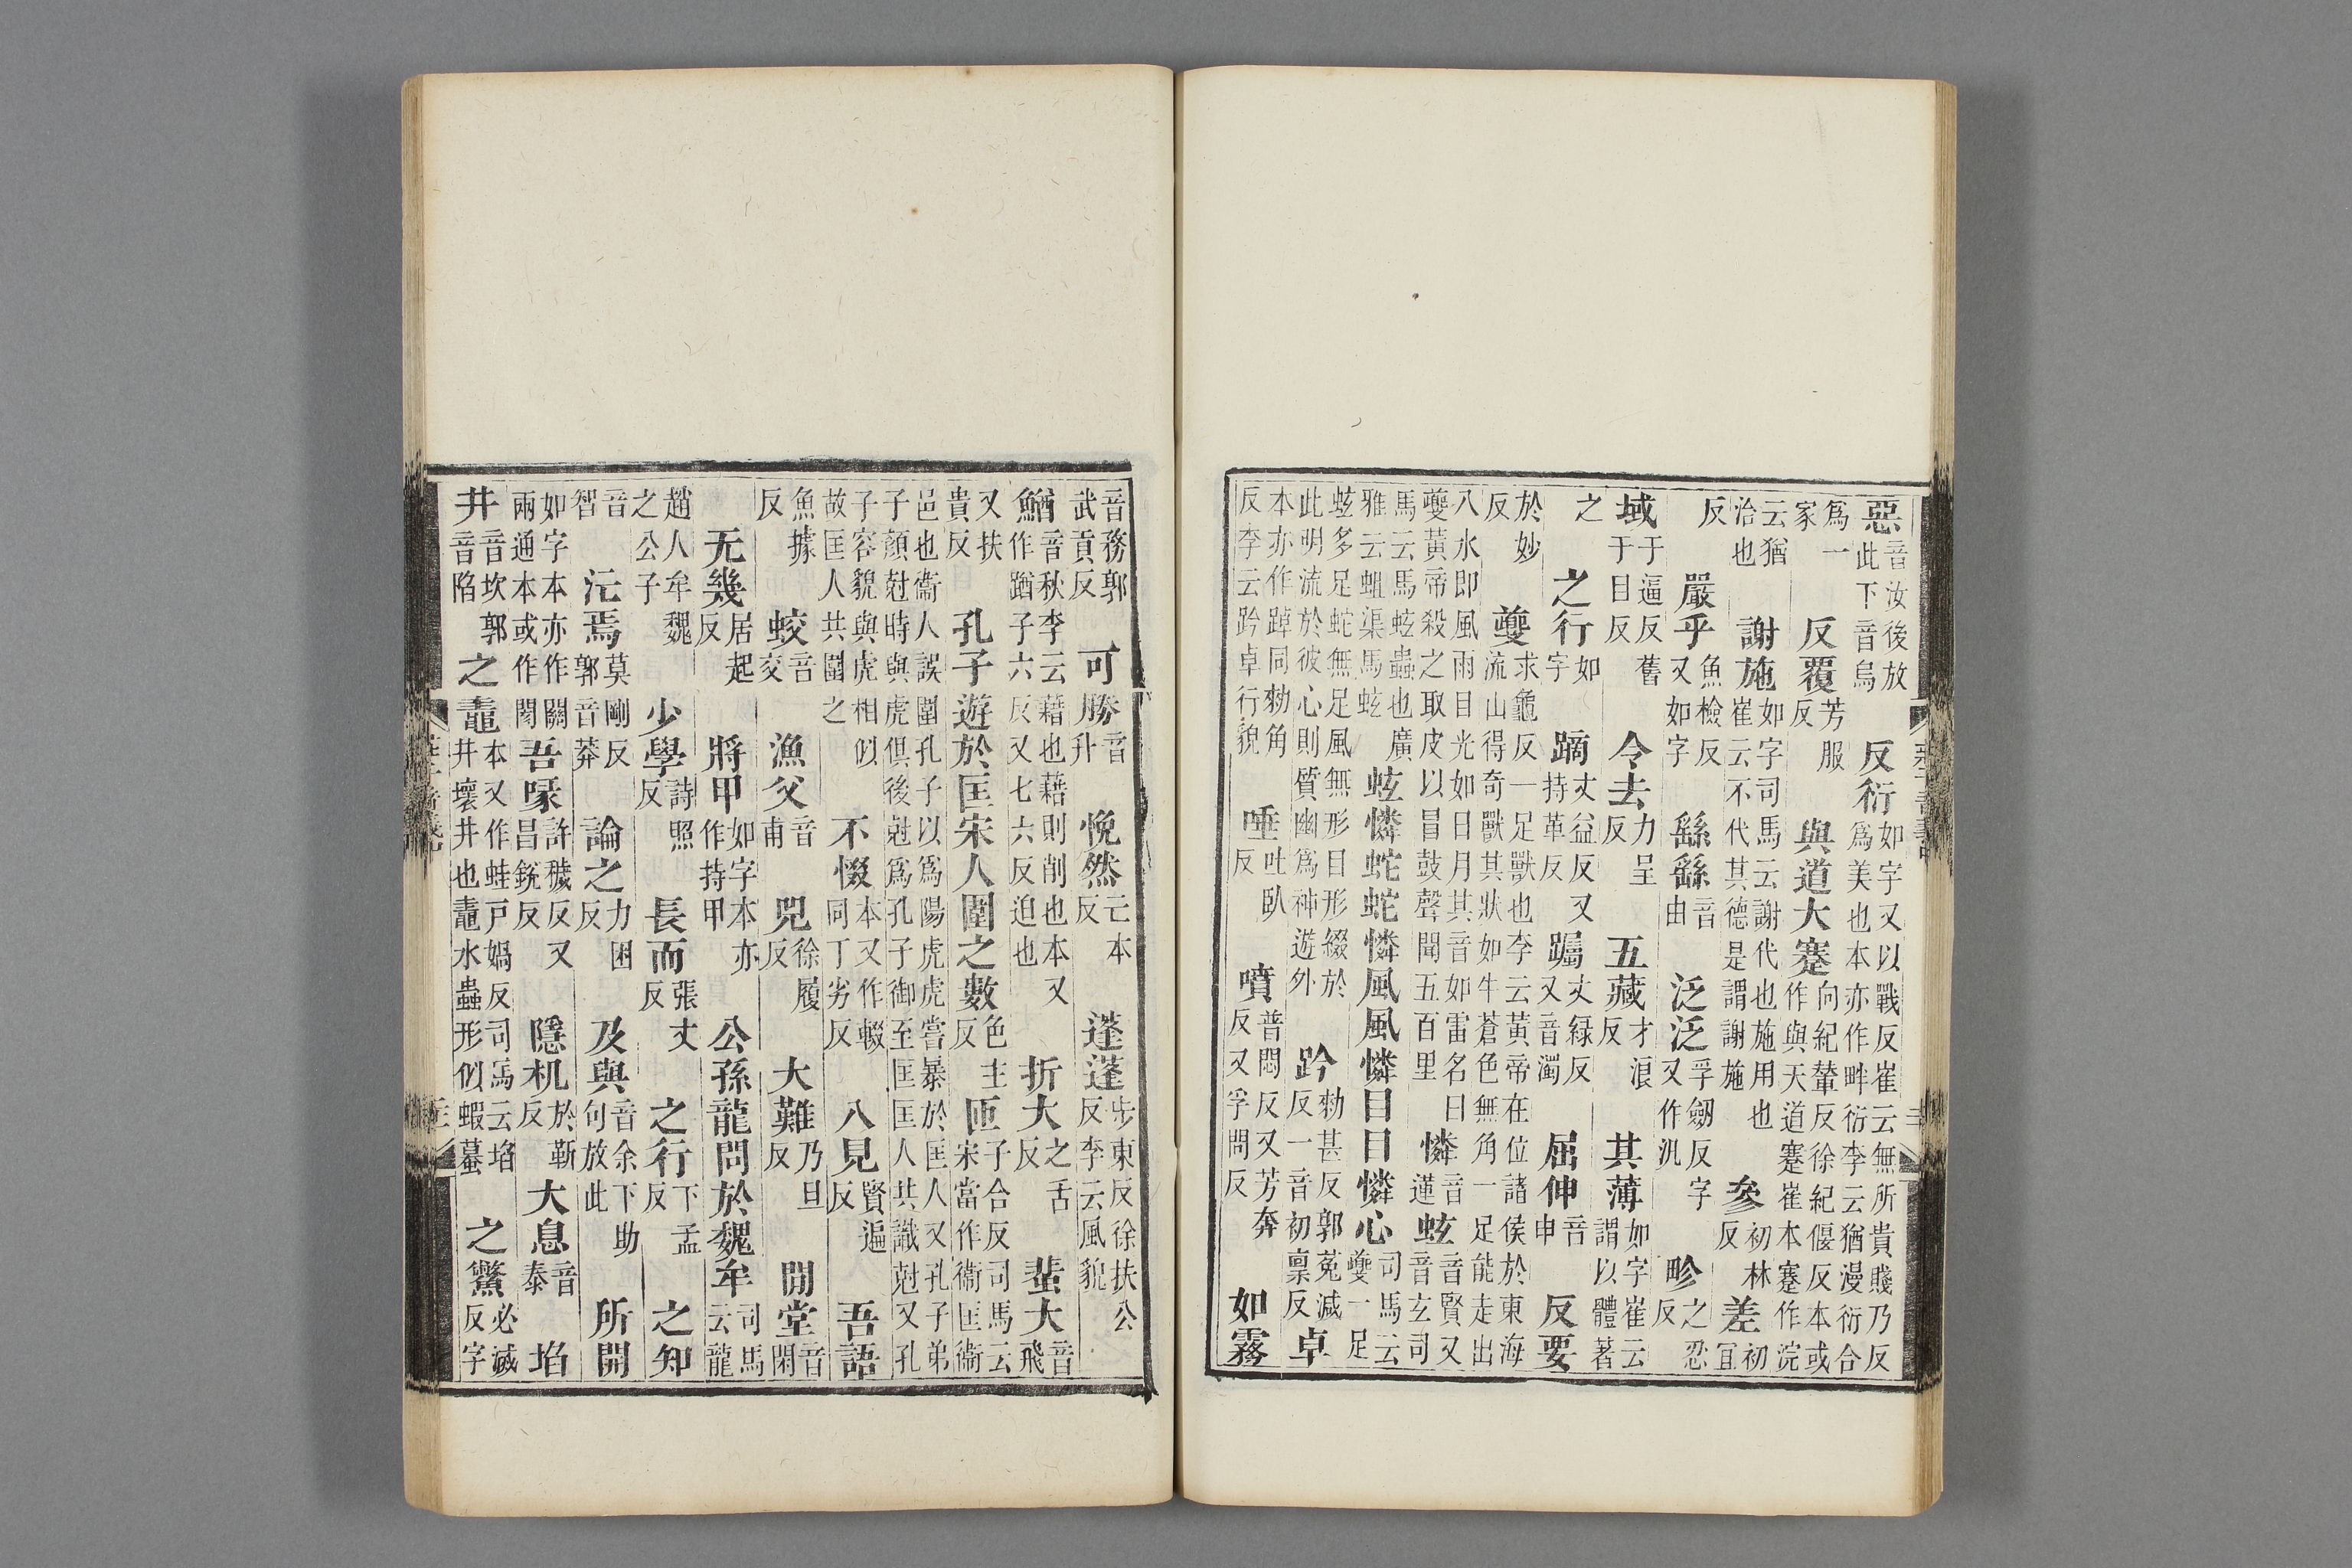 惡音汝後放此下音烏 反衍如字又以戰反崔云無所貴賤乃反爲美也本亦作畔衍李云猶漫衍合
爲一家 反覆芳服反 與道大蹇向紀輦反徐紀偃反本或作與天道蹇崔本蹇作浣
云猶洽也 謝施如字司馬云謝代也施用也崔云不代其德是謂謝施 參初林反 差初宜
反 嚴乎魚檢反又如字 繇繇音由 泛泛孚劒反字又作汎 畛之忍反
域于逼反舊于目反 令去力呈反 五藏才浪反 其薄如字崔云謂以體著
之 之行如字 蹢丈益反又持革反 躅丈緑反又音濁 屈伸音申 反要
於妙反 夔求龜反一足獸也李云黃帝在位諸侯於東海流山得奇獸其狀如牛蒼色無角一足能走出
八水即風雨目光如日月其音如雷名曰夔黃帝殺之取皮以冒鼓聲聞五百里 憐音蓮 蚿音賢又音玄司
馬云馬蚿蟲也廣雅云蛆渠馬蚿 蚿憐蛇蛇憐風風憐目目憐心司馬云夔一足
蚿多足蛇無足風無形目形綴於此明流於彼心則質幽爲神遊外 跉勑甚反郭菟減反一音初稟反 卓
本亦作踔同勑角反李云跉卓行貌 唾吐臥反 噴普悶反又芳奔反又孚問反 如霧
音務郭武貢反 可勝音升 悗然亡本反 蓬蓬步東反徐扶公反李云風貌
鰌音秋李云藉也藉則削也本又作蹈子六反又七六反迫也 折大之舌反 蜚大音飛
又扶貴反 孔子遊於匡宋人圍之數色主反 匝子合反司馬云宋當作衞匡衞
邑也衞人誤圍孔子以爲陽虎虎嘗暴於匡人又孔子弟子顏尅時與虎俱後尅爲孔子御至匡匡人共識尅又孔
子容貌與虎相似故匡人共圍之 不惙本又作輟同丁劣反 入見賢遍反 吾語
魚據反 蛟音交 漁父音甫 兕徐履反 大難乃旦反 閒堂音閑
无幾居起反 將甲如字本亦作持甲 公孫龍問於魏牟司馬云龍
趙人牟魏之公子 少學詩照反 長而張丈反 之行下孟反 之知
音智 汒焉莫剛反郭音莽 論之力困反 及與音余下助句放此 所開
如字本亦作關兩通本或作閡 吾喙許穢反又昌銳反 隱机於靳反 大息音泰 埳
井音坎郭音陷 之鼃本又作蛙戶媧反司馬云埳井壞井也鼃水蟲形似蝦蟇 之鱉必滅反字